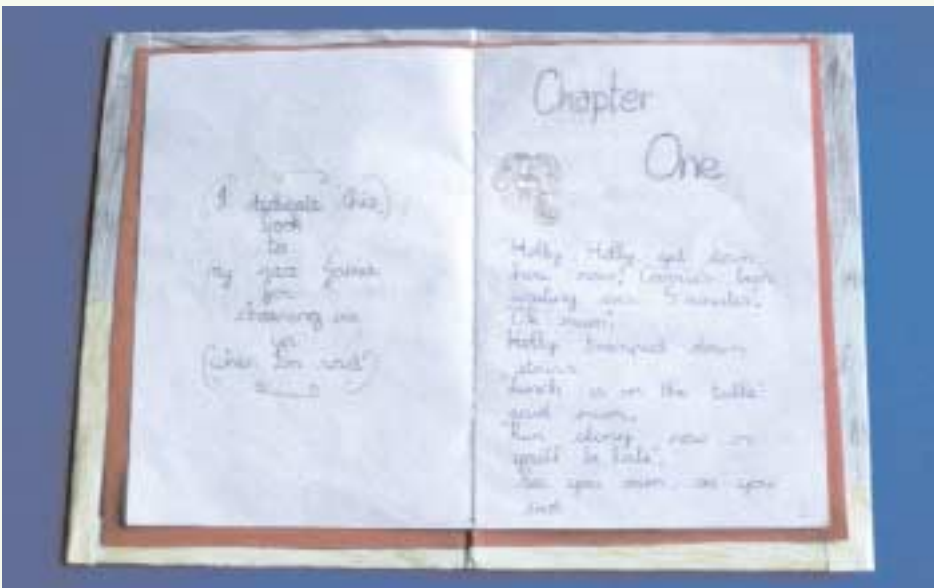 I dedicate this
book
to
my
for
cheering me
up
when I'm sad
Chapter
One
Holly Holly get down
here now! been
waiting over 5 minutes.
Ok mum,
Holly tramped down
stairs
lunch is on the table
said mum,
Run along now or
you'll be late".
See you mum, see you